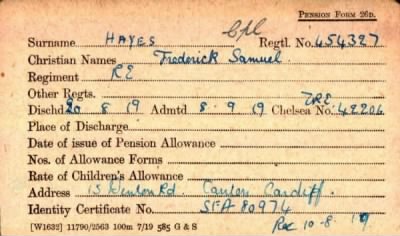 PENSION FORM 26D.
Cpl
Surname HAYES Regtl. No. 454327
Christian Names Frederick Samuel
Regiment RE
Other Regts.
Dischd 20 8 19 Admtd 8-9 19 Chelsea No. 42206
Place of Discharge
Date of issue of Pension Allowance
Nos. of Allowance Forms
Rate of Children's Allowance
Address 15 Rd. Canton Cardiff.
Identity Certificate No. SFA 80974
[W1632] 11790/2563 100m 7/19 585 G & S Rec 10-8-19.